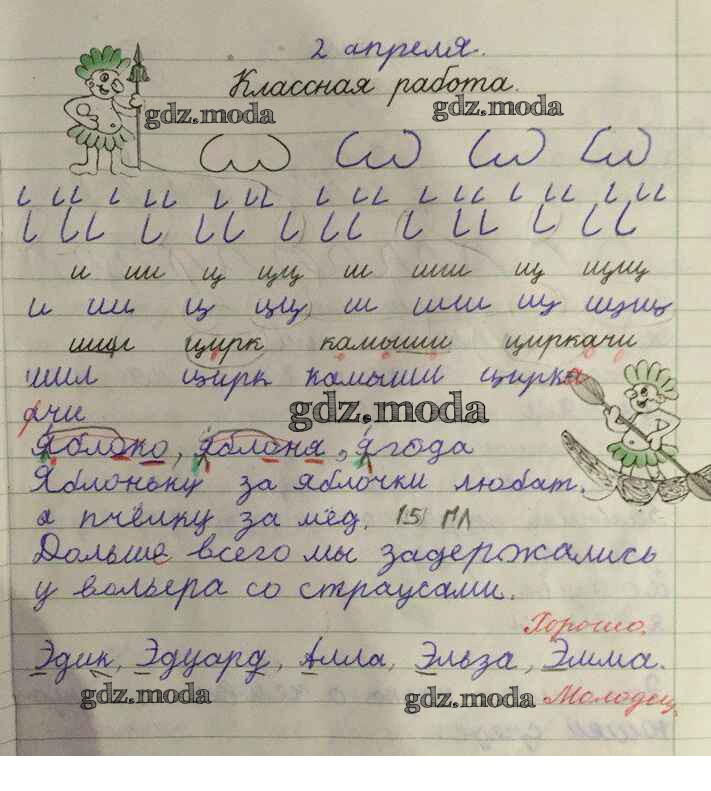 2 апреля.
Классная работа.
gdz.moda gdz.moda
и ии ц цц ш шш щ щщ
и ии ц цц ш шш щ щщ
шил цирк камыши циркачи
шил цирк камыши цирка
чи
gdz.moda
Яблоко, яблоня, ягода
Яблоньку за яблочки любят,
а пчёлку за мёд. 15 гл
Дольше всего мы задержались
у вольера со страусами.
Хорошо.
Эдик, Эдуард, Алла, Эльза, Эмма.
gdz.moda gdz.moda
Молодец,